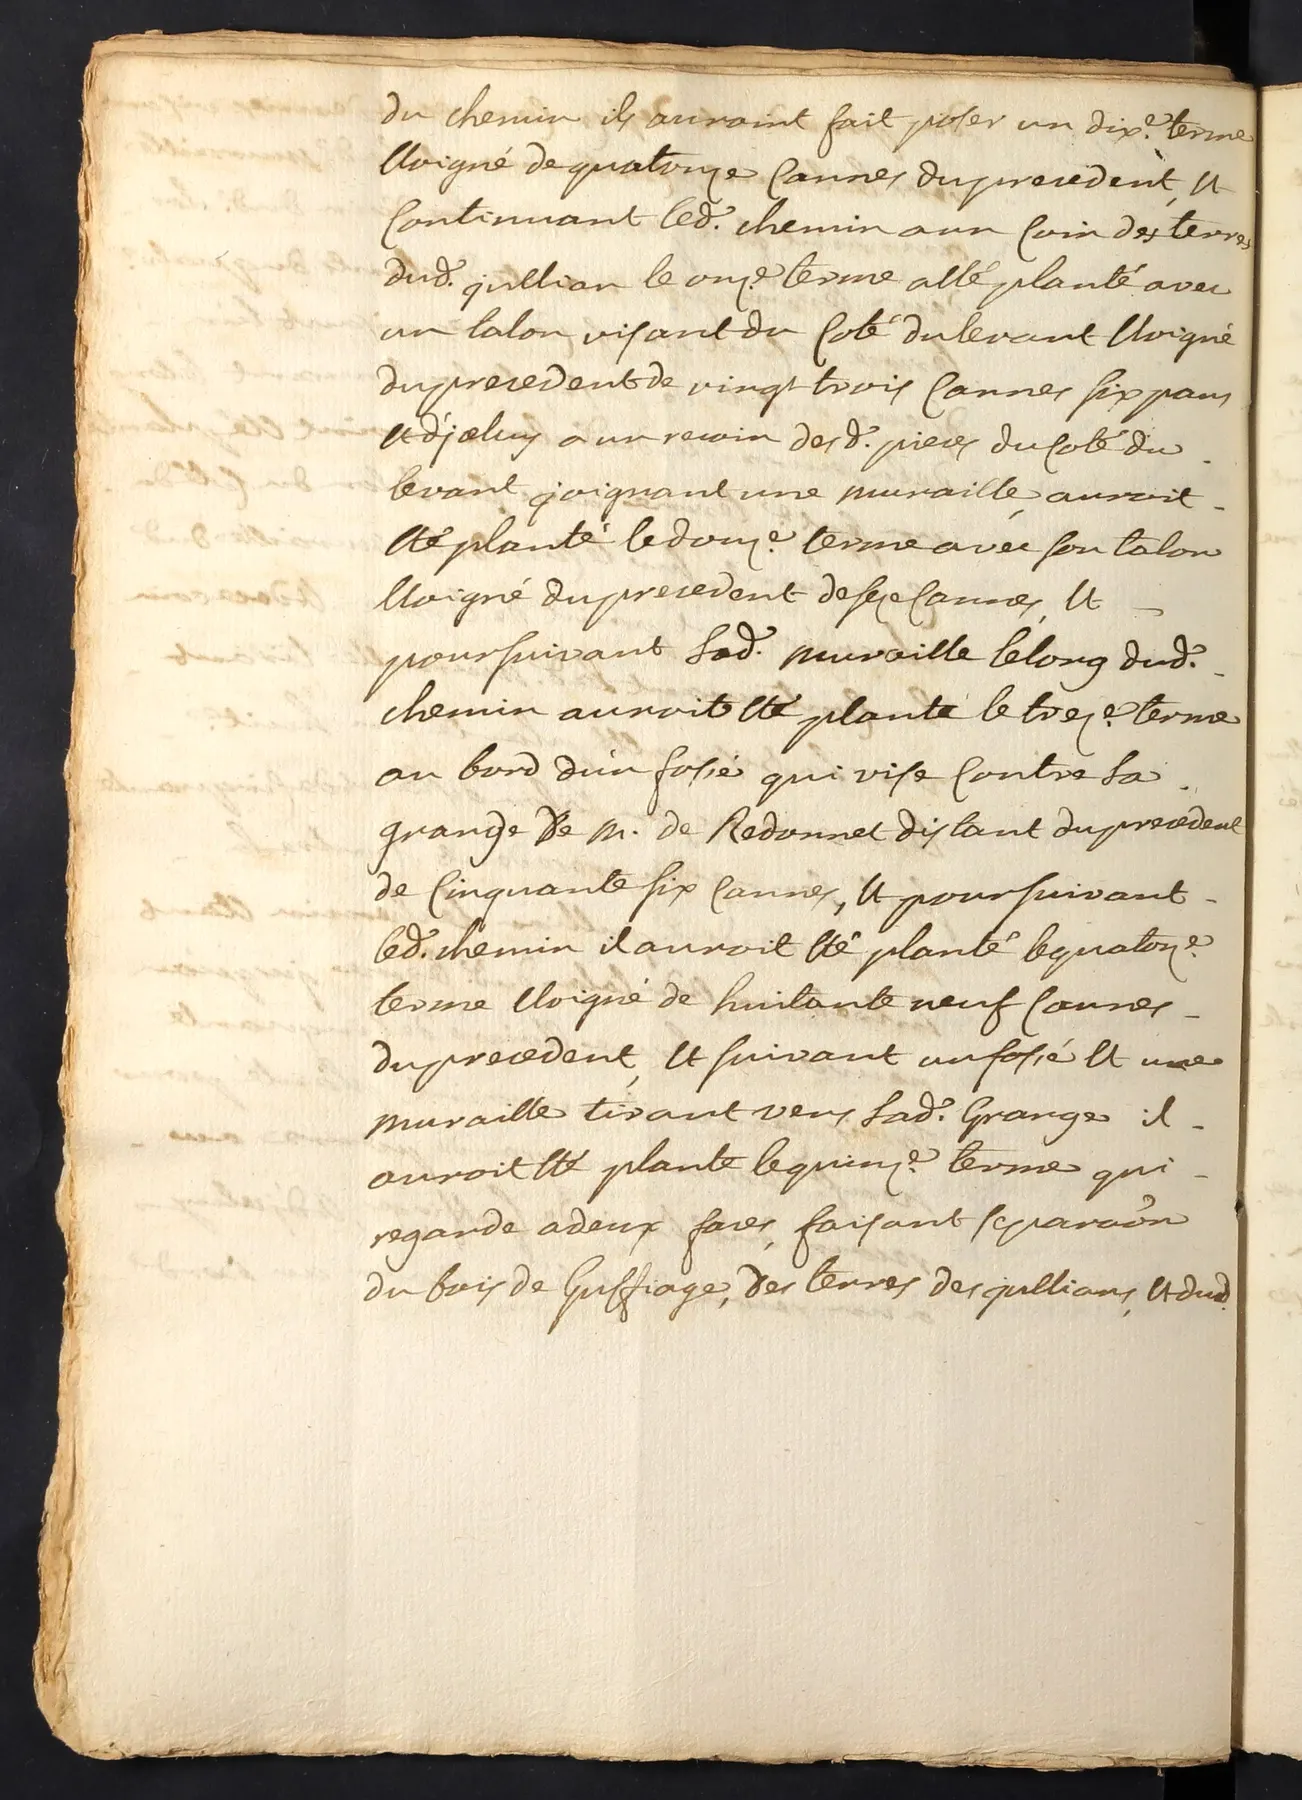 du chemin ils auroint fait poser un dix.e terme
Eloigné de quatorze Cannes du precedent, Et
Continuant led. chemin a un Coin des terres
dud. jullian le onz.e terme a esté planté avec
un talon visant du Coté du levant Eloigné
du precedent de vingt trois Cannes six pans
Et d'jceluy a un recoin desd. pieces du Coté du
levant joignant une muraille auroit
Eté planté le douz.e terme avec son talon
Eloigné du precedent de seze Cannes, Et
poursuivant lad. muraille le long dud.
chemin auroit Eté planté le trez.e terme
au bord d'un fossé qui vise Contre la
grange de M. de Redonnel distant du precedent
de Cinquante six Cannes, Et poursuivant
led. chemin il auroit Eté planté le quatorz.e
terme Eloigné de huitante neuf Cannes
du precedent, Et suivant un fossé Et une
muraille tirant vers lad. Grange il
auroit Eté planté le quinz.e terme qui
regarde a deux faces, faisant separaôn
du bois de Guffiage, des terres des jullians, Et dud.